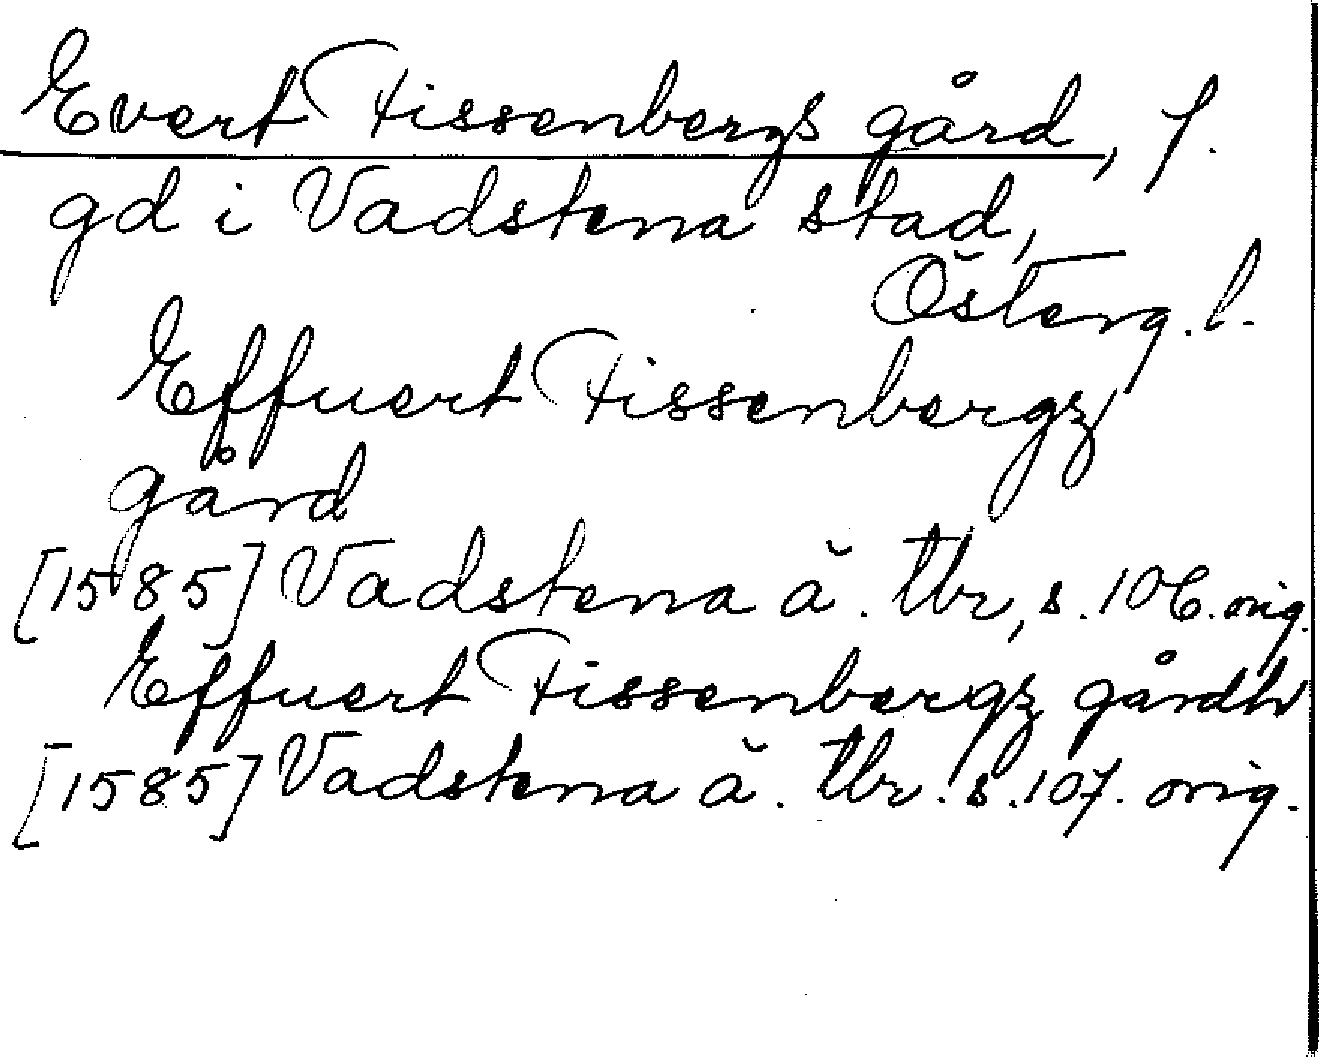 Evert Tissenbergs gård, f.
gd i Vadstena stad,
Österg. l.
Effuert Tissenbergz
gård
[1585] Vadstena ä. tbr, s. 106. orig.
Effuert Tissenbergz gårdh
[1585] Vadstena ä. tbr. s. 107. orig.